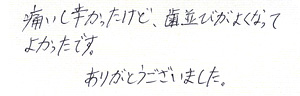 痛いし辛かったけど、歯並びがよくなって
よかったです。
ありがとうございました。